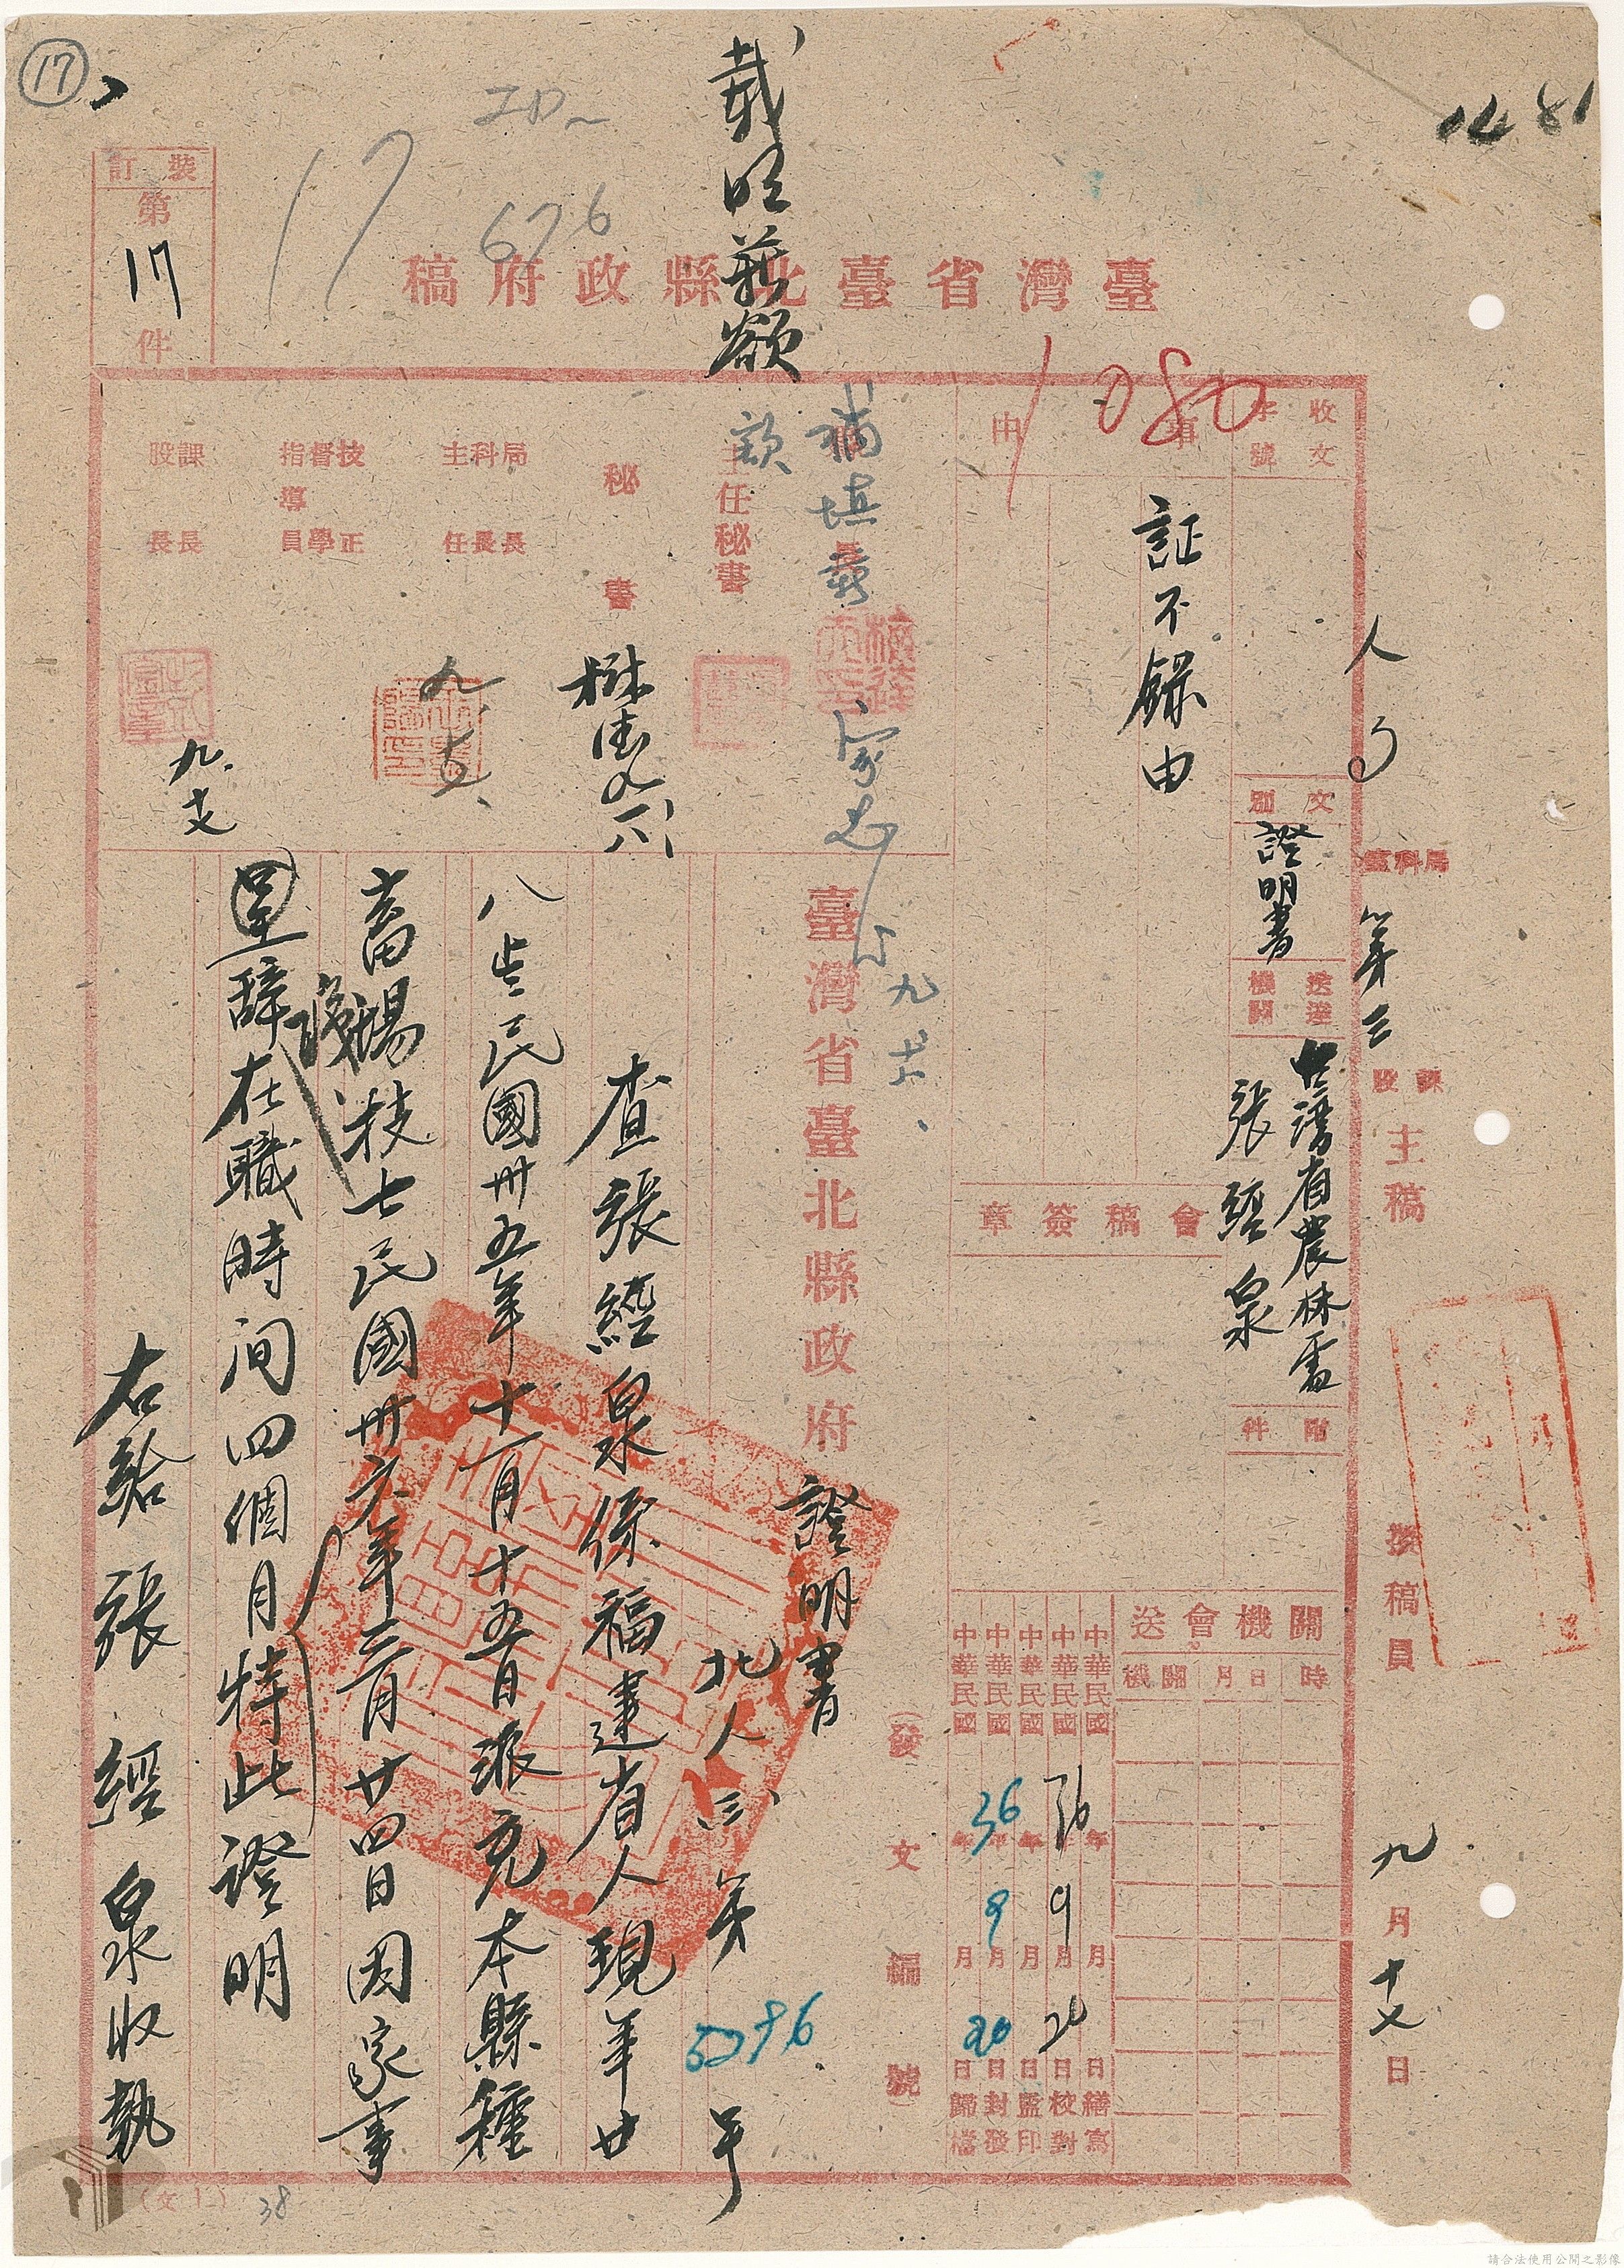 17
1481
訂裝
第
17
件
17
676
臺灣省臺北縣政府稿
1080
收文
字號
事
由
証不錄由
文別
證明書
送達機關
臺灣省農林處
張經泉
附件
局科室
第三
課股
主稿
擬稿員
九月十七日
會稿簽章
關機會送
時
月日
機關
中華民國年月日繕寫
中華民國36年9月20日校對
中華民國年月日監印
中華民國36年9月20日封發
中華民國年月日歸檔
(發文編號)
補填
主任秘書
秘書
局科主
長長任
技督指導
正學員
課股
長長
臺灣省臺北縣政府
證明書
北人三第
號
查張經泉係福建省人現年廿
八歲民國卅五年十一月十五日派充本縣種
畜場技士民國卅六年三月廿四日因家事
呈辭在職時间四個月特此證明
右給張經泉收執
(文1)
38
請合法使用公開之影像